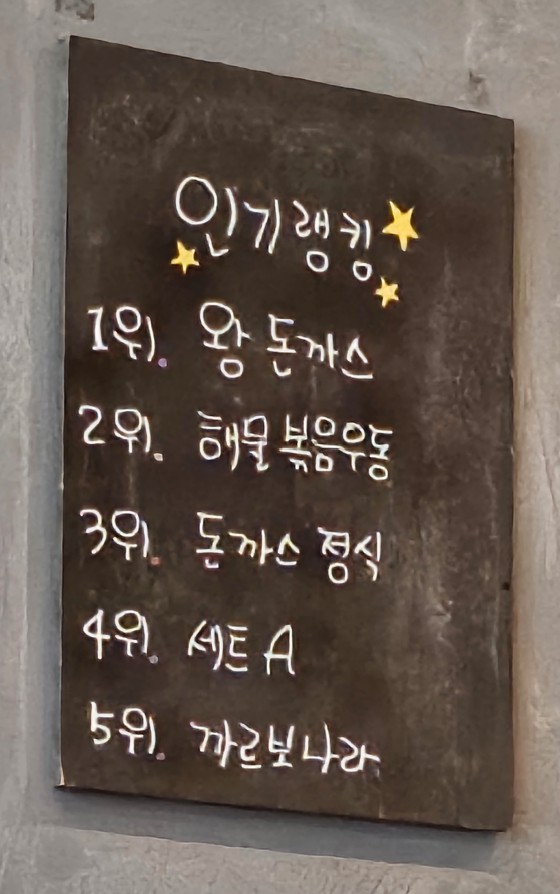 인기랭킹
1위. 왕돈까스
2위. 해물볶음우동
3위. 돈까스 정식
4위. 세트 A
5위. 까르보나라